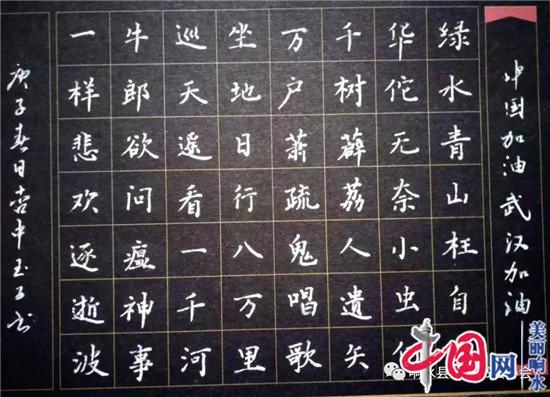 中国加油 武汉加油
绿水青山枉自
华佗无奈小虫何
千树薜荔人遗矢
万户萧疏鬼唱歌
坐地日行八万里
巡天遥看一千河
牛郎欲问瘟神事
一样悲欢逐逝波
庚子春日壶中玉子书
中国网
美丽响水